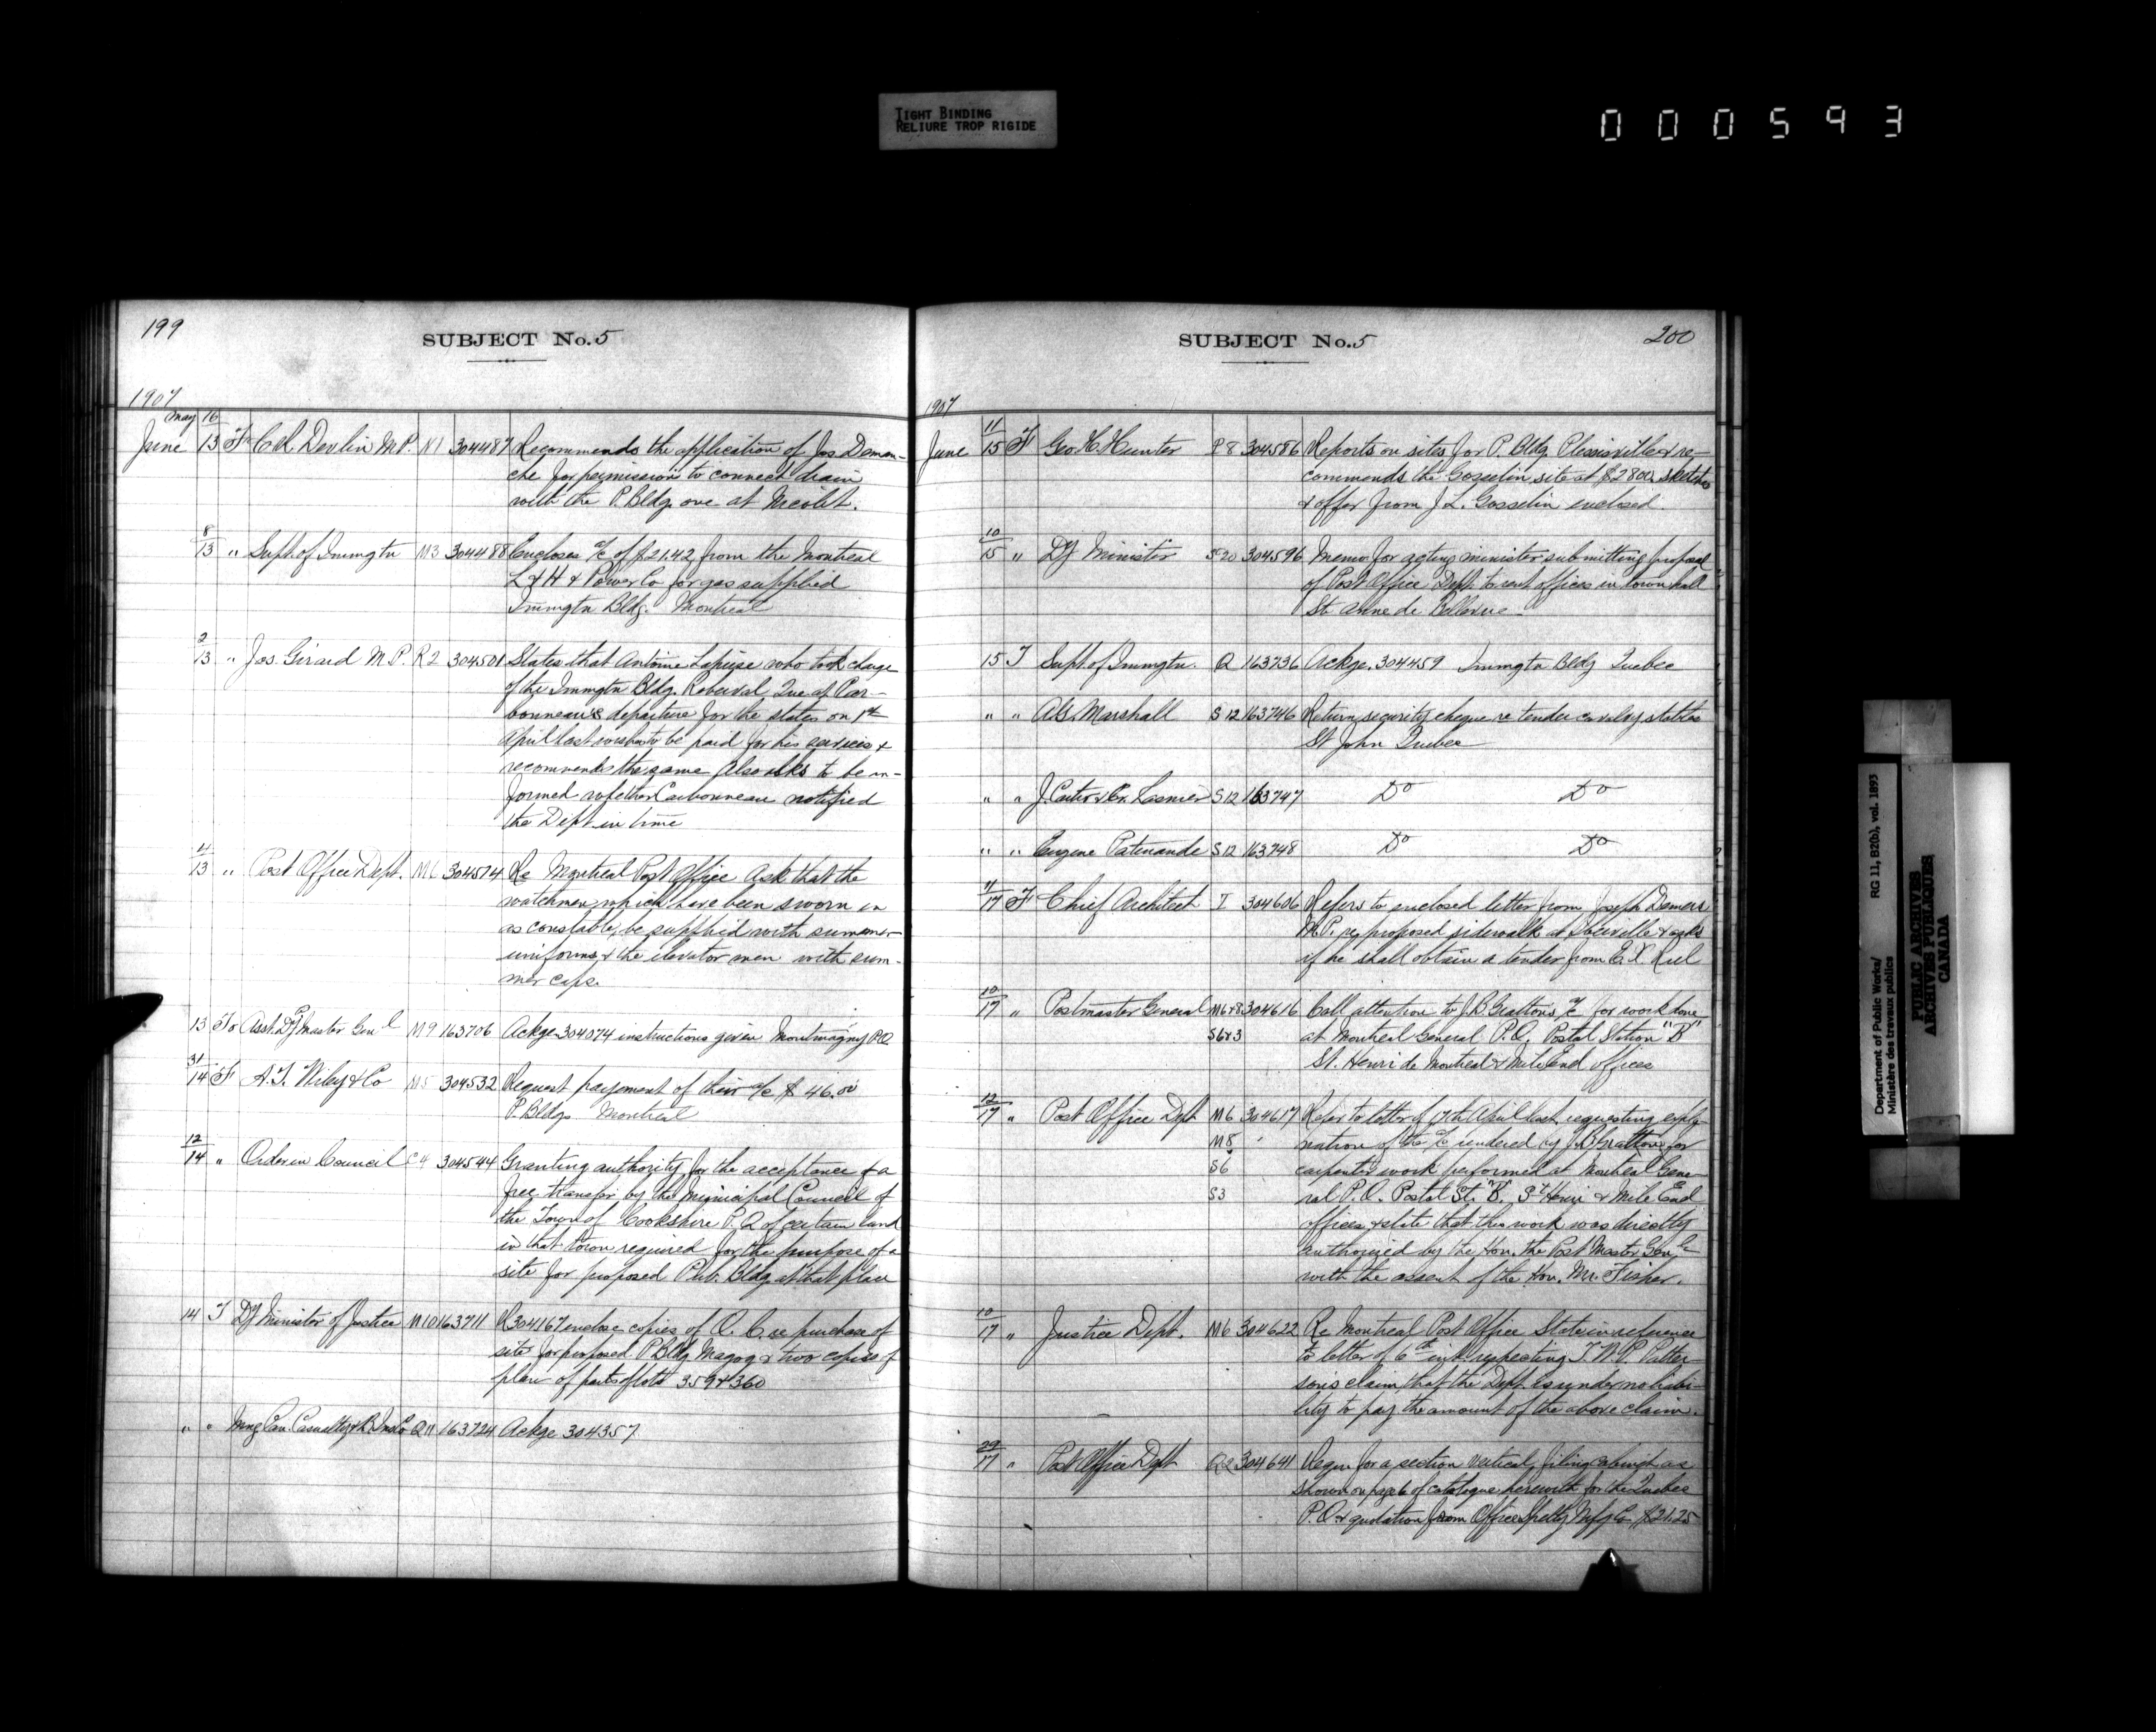 TIGHT BINDING
RELIURE TROP RIGIDE
000593
199
SUBJECT No. 5
1907
May 16
June 13 F Devlin M.P. N1 304487 Recommends the application of Jos Deman-
che for permission to connect drain
with the P. Bldg. one at Nicolet.
8
13 " Supt. of Immgtn M3 304488 Encloses a/c of $21.42 from the Montreal
L & H & Power Co for gas supplied
Immgtn Bldg. Montreal
2
13 " Jos. Girard M.P. R2 304501 States that Antoine Lapuise who took charge
of the Immgtn Bldg. Roberval Que. at Car-
bonneau's departure for the states on 1st
April last wishes to be paid for his services &
recommends the same Also asks to be in-
formed whether Carbonneau notified
the Dept. in time
4
13 " Post Office Dept. M6 304574 Re Montreal Post Office Ask that the
watchmen which have been sworn in
as constables, be supplied with summer
uniforms & the elevator men with sum-
mer caps.
13 To Asst. Dy P Master Genl M9 163706 Ackge 304074 instructions given Montmagny P.O.
31
14 F A.T. Wiley & Co M5 304532 Request payement of their a/c $ 46.00
P. Bldgs Montreal
12
14 " Order in Council C4 304544 Granting authority for the acceptance of a
free transfer by the Municipal Council of
the Town of Cookshire P.Q. of certain land
in that town required for the purpose of a
site for proposed Pub. Bldg. at that place
14 T Dy Minister of Justice M10 163711 R 304167 enclose copies of O. C. re purchase of
site for proposed P Bldg Magog & two copies of
plan of parts of lots 359 & 360
" " Mng Can. Casualty & B. Ins Co Q11 163724 Ackge 304357
SUBJECT No. 5
200
1907
11
June 15 F Geo. H. Hunter P8 304586 Reports on sites for P. Bldg. Plessisville & re-
commends the Gosselin site at $2800. sketches
& offer from J. L. Gosselin enclosed.
10
15 " Dy Minister S20 304596 Memo. for acting minister submitting proposal
of Post Office Dept. to rent offices in town hall
St. Anne de Bellevue
15 T Supt. of Immgtn. Q 163736 Ackge. 304459 Immgtn Bldg Quebec
" " Marshall S12 163746 Return security cheque re tender cavalry stables
St John Quebec
" " J. Cartier & Lasnier S12 163747 Do Do
" " Eugene Patenaude S12 163748 Do Do
11
17 F Chief Architect I 304606 Refers to enclosed letter from Joseph Demers
M.P. re proposed sidewalk at Iberville & asks
if he shall obtain a tender from Riel
10
17 " Postmaster General M6&8 304616 Call attention to J.B Gratton's a/c for work done
S6&3 at Montreal General P.O. Postal Station "B"
St. Henri de Montreal & Mile End offices
12
17 " Post Office Dept M6 304617 Refer to letter of 17th April last requesting expla-
M8 " nation of the a/c rendered by J.B Gratton for
S6 carpenter work performed at Montreal Gene-
S3 ral P.O. Postal St. "B". St Henri & Mile End
offices & state that this work was directly
authorized by the Hon. the Post Master Genl
with the assent of the Hon. Mr. Fisher.
10
17 " Justice Dept. M6 304622 Re Montreal Post Office State in reference
to letter of 6th inst. respecting Patter-
son's claim, that the Dept. is under no liabi-
lity to pay the amount of the above claim.
29
17 " Post Office Dept Q2 304641 Requ for a section vertical filing cabinet as
shown on page 6 of catalogue herewith for the Quebec
P.O. & quotation from Office Spclty Mfg Co $21.25
Department of Public Works/
Ministère des travaux publics
RG 11, B2(b), vol. 1893
PUBLIC ARCHIVES
ARCHIVES PUBLIQUES
CANADA